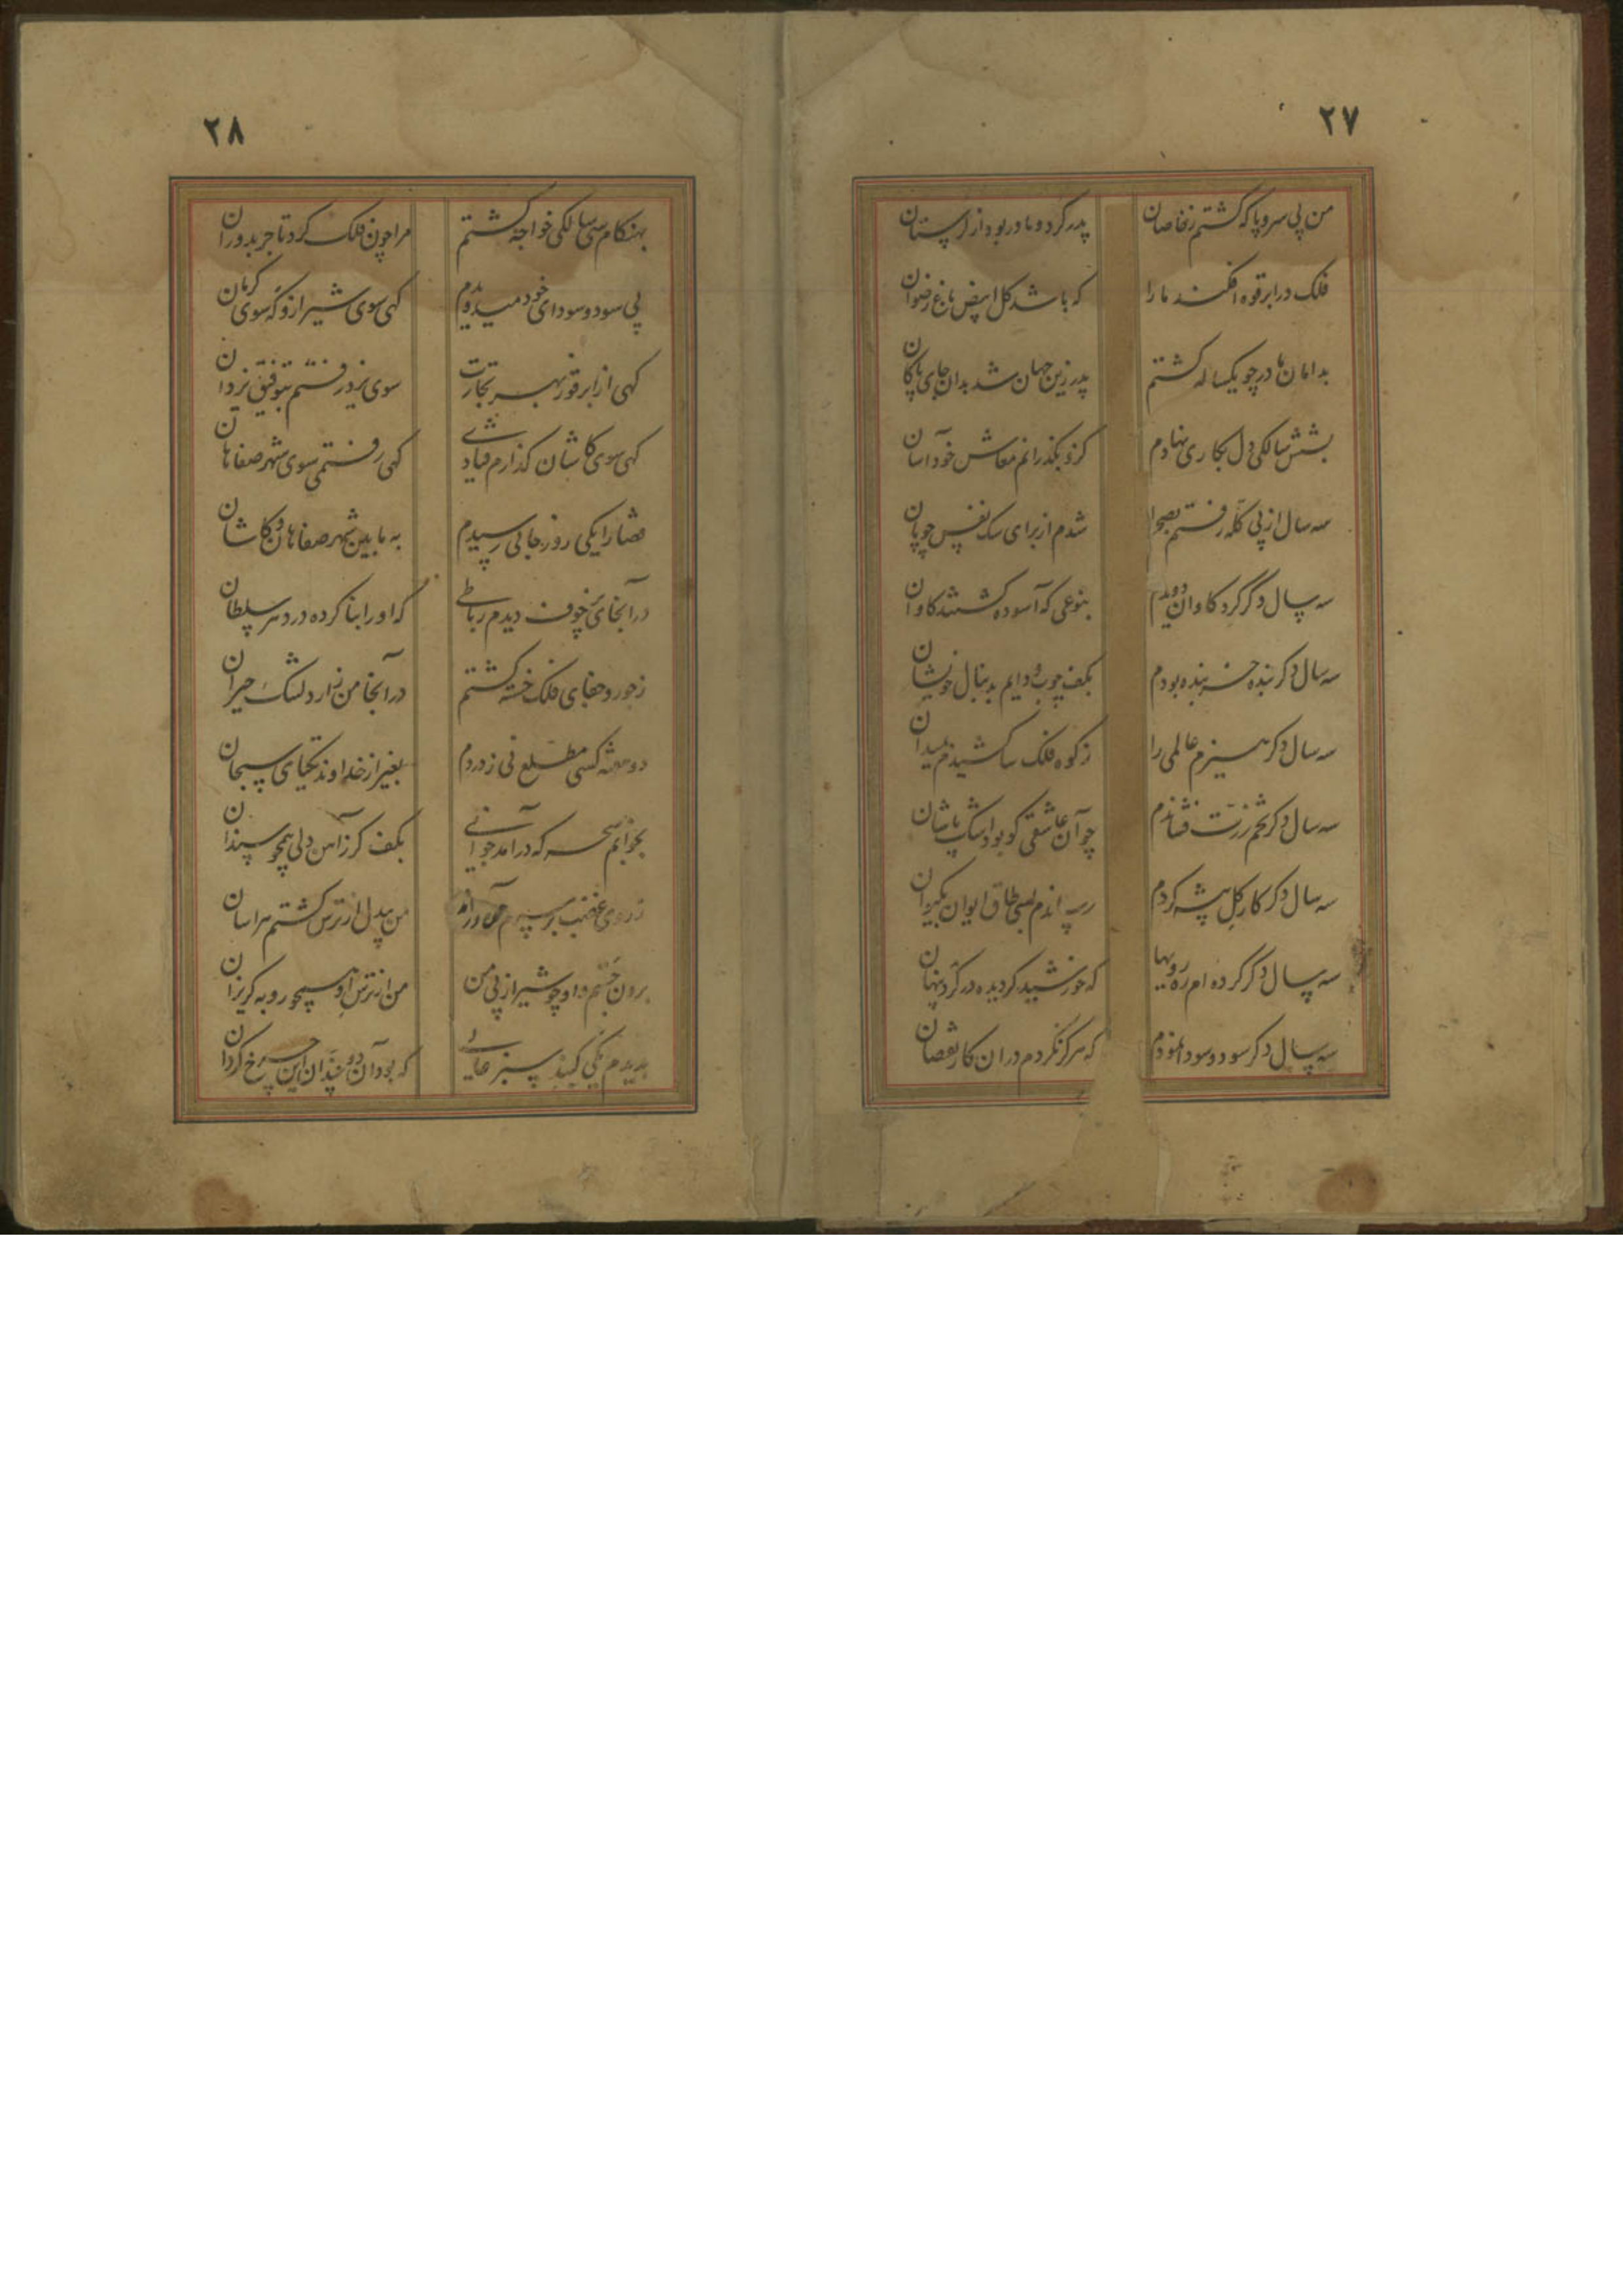 ۲۷
من بی سر و پا که گشتم ز نقاصان
پدر کرد و مادر بود از لرستان
فلک در ابرقوه افکند ما را
که باشد گل ابیض باغ رضوان
بدامان مادر چو یکساله گشتم
پدر زین جهان شد بدان جای پاکان
بشش سالگی دل بکاری نهادم
کزو بگذرانم معاش خود آسان
سه سال از پی گله رفتم بصحرا
شدم از برای سک نفس چوپان
سه سال دگر گرد کاوان دویدم
بنوعی که آسوده گشتند کاوان
سه سال دگر بنده خربنده بودم
بکف چوب و دایم بدنبال خویشان
سه سال دگر هیزم عالمی را
ز کوه فلک سا کشیدم بمیدان
سه سال دگر تخم زرت فشاندم
چو آن عاشقی کو بود اشک پاشان
سه سال دگر کار گل پیشه کردم
رساندم بسی طاق ایوان بکیوان
سه سال دگر کرده ام ره رویها
که خورشید گردیده در گرد پنهان
سه سال دگر سود و سودا نمودم
که هرگز نکردم در ان کار نقصان
۲۸
بهنکام سی سالگی خواجه گشتم
مرا چون فلک کرد تاجر بدوران
پی سود و سودای خود میدویدم
گهی سوی شیراز و گه سوی کرمان
گهی از ابرقو بهر تجارت
سوی یزد رفتم بتوفیق یزدان
گهی سوی کاشان گذارم فتادی
گهی رفتمی سوی شهر صفاهان
قضا را یکی روز جایی رسیدم
به مابین شهر صفاهان و کاشان
در آنجای پرخوف دیدم رباطی
که او را بنا کرده در دهر سلطان
ز جور و جفای فلک خسته گشتم
در آنجا من زار دلتنک حیران
دو هفته کسی مطلع نی ز دردم
بغیر از خداوند یکتای سبحان
بخوابم سحر که در آمد جوانی
بکف گرز آهن دلی همچو سندان
ز روی غضب بر سرم
من بیدل از ترس گشتم هراسان
برون جستم و او چو شیر از پی من
من از ترس او همچو روبه گریزان
بدیدم یکی گنبد سبز عالی
که بود آن دو چندان این چرخ گردان